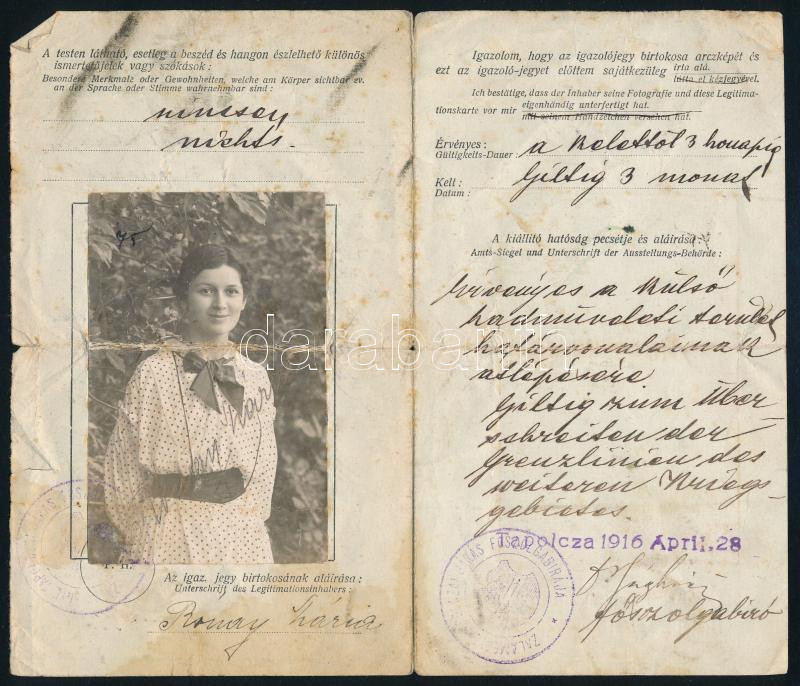 A testen látható, esetleg a beszéd és hangon észlelhető különös
ismertetőjelek vagy szokások :
Besondere Merkmale oder Gewohnheiten, welche am Körper sichtbar ev.
an der Sprache oder Stimme wahrnehmbar sind :
nincsen
nichts.
75
P. H.
Az igaz. jegy birtokosának aláírása :
Unterschrift des Legitimationsinhabers :
Ronay Mária
Igazolom, hogy az igazolójegy birtokosa arczképét és
ezt az igazoló-jegyet előttem sajátkezüleg írta alá.
látta el kézjegyével.
Ich bestätige, dass der Inhaber seine Fotografie und diese Legitima-
tionskarte vor mir eigenhändig unterfertigt hat.
mit seinem Handzeichen versehen hat.
Érvényes : a kelettől 3 hónapig
Gültigkeits-Dauer :
Kelt : Giltig 3 monat
Datum :
A kiállító hatóság pecsétje és aláírása :
Amts-Siegel und Unterschrift der Ausstellungs-Behörde :
Érvényes a külső
hadműveleti terület
határvonalainak
átlépésére
Giltig zum Über-
schreiten der
Grenzlinien des
weiteren Kriegs-
gebietes.
Tapolcza 1916 April. 28
FŐSZOLGABIRÁJA
ZALA
főszolgabíró
darabanth